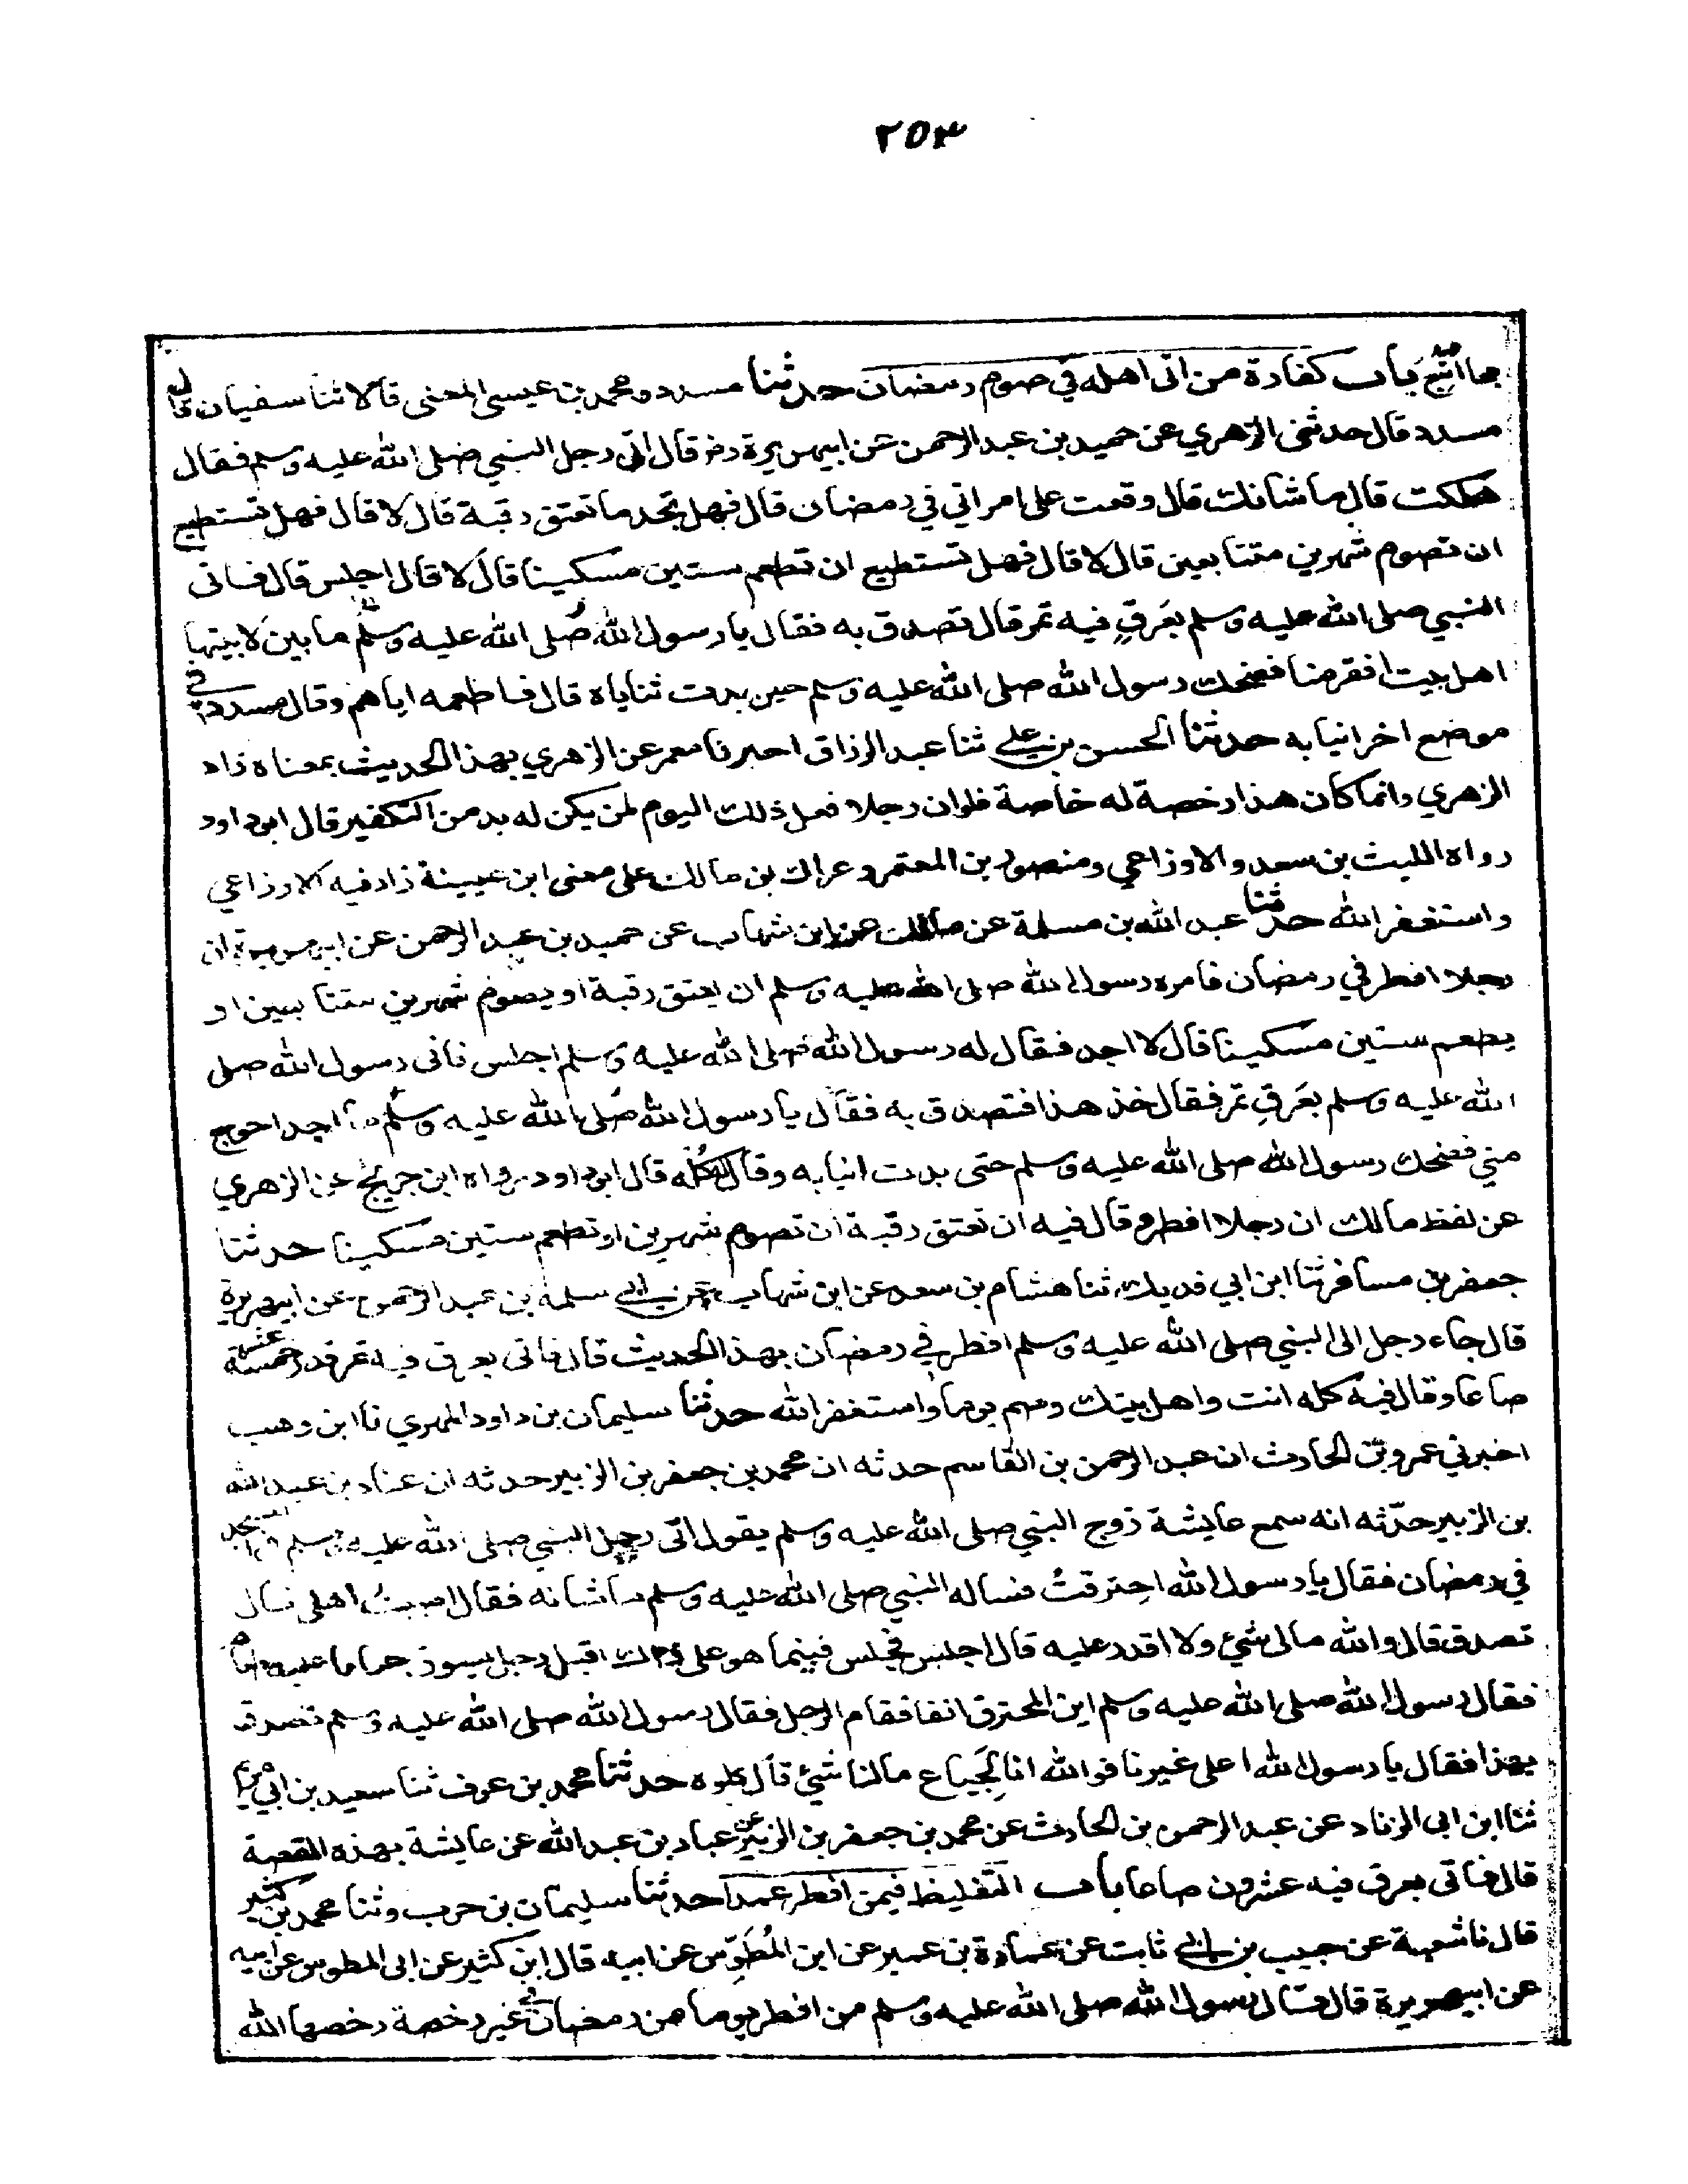 ٢٥٣
بما اتبع باب كفارة من اتى اهله في صوم رمضان حدثنا مسدد ومحمد بن عيسى المعنى قالا ثنا سفيان قال
مسدد قال حدثنى الزهري عن حميد بن عبد الرحمن عن ابي هريرة رض قال اتى رجل النبي صلى الله عليه وسلم فقال
هلكت قال ما شانك قال وقعت على امراتي في رمضان قال فهل تجد ما تعتق رقبة قال لا قال فهل تستطيع
ان تصوم شهرين متتابعين قال لا قال فهل تستطيع ان تطعم ستين مسكينا قال لا قال اجلس قال فاتى
النبي صلى الله عليه وسلم بعَرقٍ فيه تمر قال تصدق به فقال يا رسول الله صلى الله عليه وسلم ما بين لابيتها
اهل بيت افقر منا فضحك رسول الله صلى الله عليه وسلم حين بدت ثناياه قال فاطعمه اياهم وقال مسدد في
موضع اخر انيابه حدثنا الحسن بن علي ثنا عبد الرزاق اخبرنا معمر عن الزهري بهذا الحديث بمعناه زاد
الزهري وانما كان هذا رخصة له خاصة فلوان رجلا فعل ذلك اليوم لمن يكن له بد من التكفير قال ابو داود
رواه الليث بن سعد والاوزاعي ومنصور بن المعتمر وعراك بن مالك على معنى ابن عيينة زاد فيه الاوزاعي
واستغفر الله حدثنا عبد الله بن مسلمة عن مالك عن ابن شهاب عن حميد بن عبد الرحمن عن ابي هريرة ان
رجلا افطر في رمضان فامره رسول الله صلى الله عليه وسلم ان يعتق رقبة او يصوم شهرين متتابعين او
يطعم ستين مسكينا قال لا اجد فقال له رسول الله صلى الله عليه وسلم اجلس فاتى رسول الله صلى
الله عليه وسلم بعَرقِ تمر فقال خذ هذا فتصدق به فقال يا رسول الله صلى الله عليه وسلم ما اجد احوج
مني فضحك رسول الله صلى الله عليه وسلم حتى بدت انيابه وقال كُله قال ابو داود رواه ابن جريج عن الزهري
عن لفظ مالك ان رجلا افطر وقال فيه ان تعتق رقبة ان تصوم شهرين او تطعم ستين مسكينا حدثنا
جعفر بن مسافر ثنا ابن ابي فديك ثنا هشام بن سعد عن ابن شهاب عن ابي سلمة بن عبد الرحمن عن ابي هريرة
قال جاء رجل الى النبي صلى الله عليه وسلم افطر في رمضان بهذا الحديث قال فاتى بعرق فيه تمر قدر خمسة عشر
صاعا وقال فيه كله انت واهل بيتك وصم يوما واستغفر الله حدثنا سليمان بن داود المهري نا ابن وهب
اخبرني عمرو بن الحارث ان عبد الرحمن بن القاسم حدثه ان محمد بن جعفر بن الزبير حدثه ان عباد بن عبد الله
بن الزبير حدّثه انه سمع عايشة زوج النبي صلى الله عليه وسلم يقول اتى رجل النبي صلى الله عليه وسلم المسجد
في رمضان فقال يا رسول الله احترقتُ فساله النبي صلى الله عليه وسلم ما شانه فقال اصبتُ اهلى قال
تصدق قال والله مالى شئ ولا اقدر عليه قال اجلس فجلس فبينما هو على ذلك اقبل رجل يسوق حمارا عليه طعام
فقال رسول الله صلى الله عليه وسلم اين المحترق انفا فقام الرجل فقال رسول الله صلى الله عليه وسلم تصدق
بهذا فقال يا رسول الله ا على غيرنا فوالله انا لجَياع مالنا شئ قال كلوه حدثنا محمد بن عوف ثنا سعيد بن ابي مريم
ثنا ابن ابى الزناد عن عبد الرحمن بن الحارث عن محمد بن جعفر بن الزبير عن عباد بن عبد الله عن عايشة بهذه القصة
قال فاتى بعرق فيه عشرون صاعا باب التغليظ فيمن افطر عمدا حدثنا سليمان بن حرب وثنا محمد بن كثير
قال نا شعبة عن حبيب بن ابي ثابت عن عمارة بن عمير عن ابن المُطَوِّس عن ابيه قال ابن كثير عن ابى المطوس عن ابيه
عن ابي هريرة قال قال رسول الله صلى الله عليه وسلم من افطر يوما من رمضان في غير رخصة رخصها الله